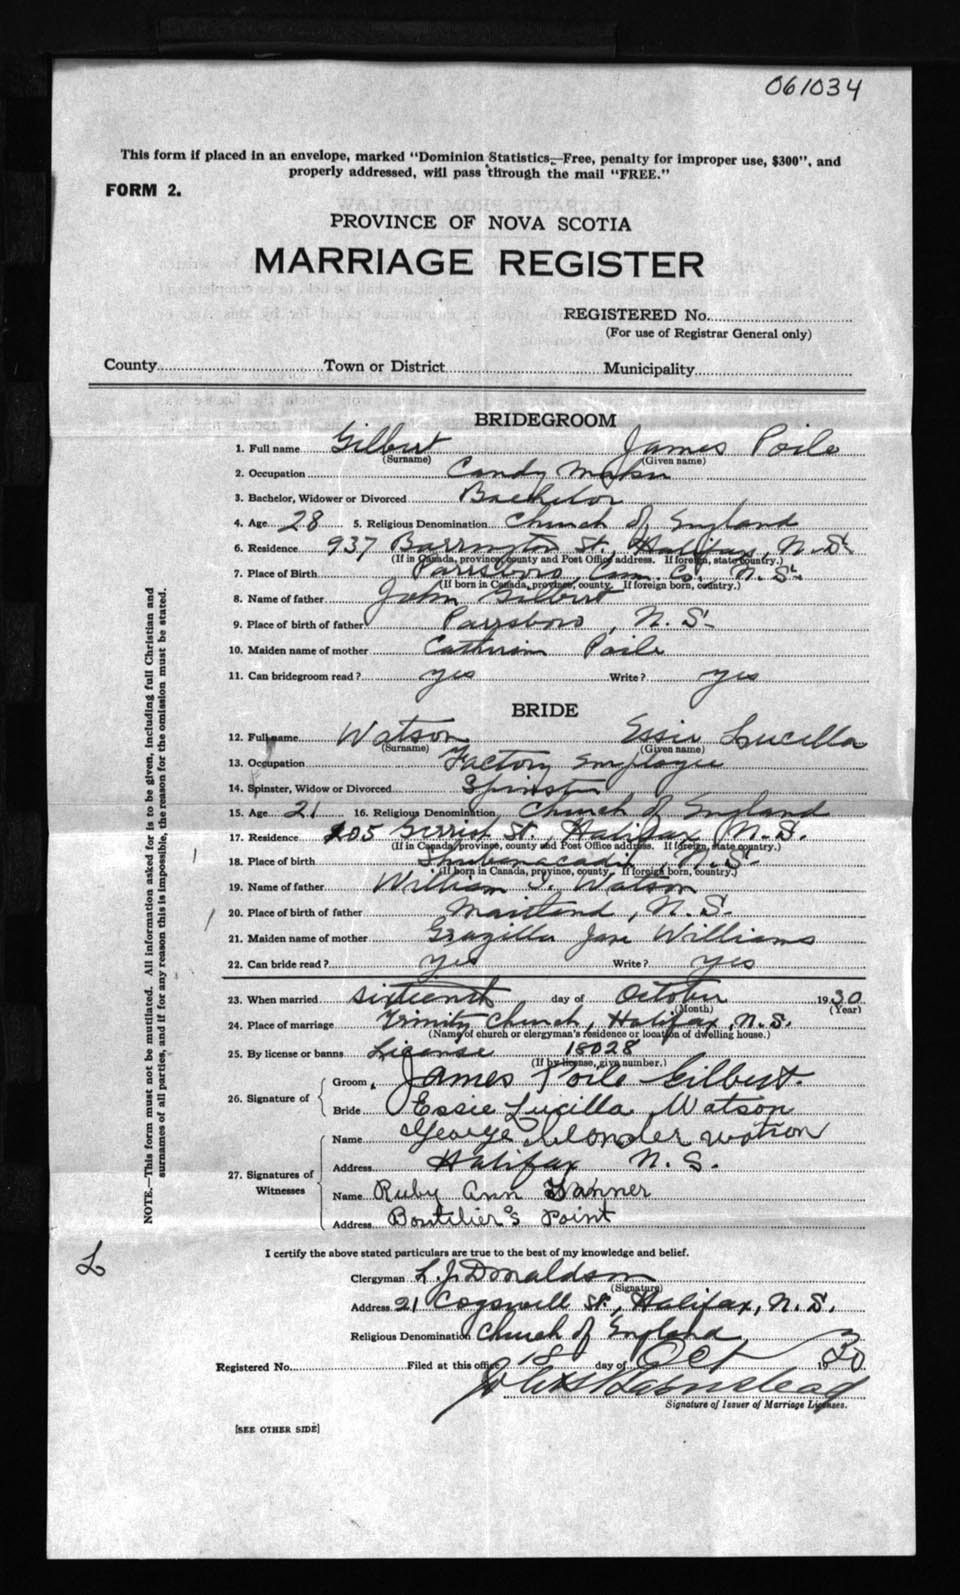 061034
This form if placed in an envelope, marked "Dominion Statistics—Free, penalty for improper use, $300", and
properly addressed, will pass through the mail "FREE."
FORM 2.
PROVINCE OF NOVA SCOTIA
MARRIAGE REGISTER
REGISTERED No.
(For use of Registrar General only)
County Town or District Municipality
BRIDEGROOM
1. Full name Gilbert James Poile
(Surname) (Given name)
2. Occupation Candy Maker
3. Bachelor, Widower or Divorced Bachelor
4. Age 28 5. Religious Denomination Church of England
6. Residence 937 Barrington St., Halifax, N.S.
(If in Canada, province, county and Post Office address. If foreign, state country.)
7. Place of Birth Parrsboro, Cum. Co. N.S.
(If born in Canada, province, county. If foreign born, country.)
8. Name of father John Gilbert
9. Place of birth of father Parrsboro, N.S.
10. Maiden name of mother Catherine Poile
11. Can bridegroom read? yes Write? yes
BRIDE
12. Full name Watson Essie Lucilla
(Surname) (Given name)
13. Occupation Factory Employee
14. Spinster, Widow or Divorced Spinster
15. Age 21 16. Religious Denomination Church of England
17. Residence 205 Gerrish St., Halifax, N.S.
(If in Canada, province, county and Post Office address. If foreign, state country.)
18. Place of birth Shubenacadie, N.S.
(If born in Canada, province, county. If foreign born, country.)
19. Name of father William Watson
20. Place of birth of father Maitland, N.S.
21. Maiden name of mother Grazilla Jane Williams
22. Can bride read? yes Write? yes
23. When married sixteenth day of October 1930
(Month) (Year)
24. Place of marriage Trinity Church, Halifax, N.S.
(Name of church or clergyman's residence or location of dwelling house.)
25. By license or banns License 18028
(If by license, give number.)
26. Signature of
Groom James Poile Gilbert.
Bride Essie Lucilla Watson
27. Signatures of Witnesses
Name George watson
Address Halifax N.S.
Name Ruby Ann
Address Boutilier's Point
I certify the above stated particulars are true to the best of my knowledge and belief.
Clergyman L. J. Donaldson
(Signature)
Address 21 Cogswell St., Halifax, N.S.
Religious Denomination Church of England
Registered No. Filed at this office 18 day of Oct 1930
Signature of Issuer of Marriage Licenses.
[SEE OTHER SIDE]
NOTE.—This form must not be mutilated. All information asked for is to be given, including full Christian and
surnames of all parties, and if for any reason this is impossible, the reason for the omission must be stated.